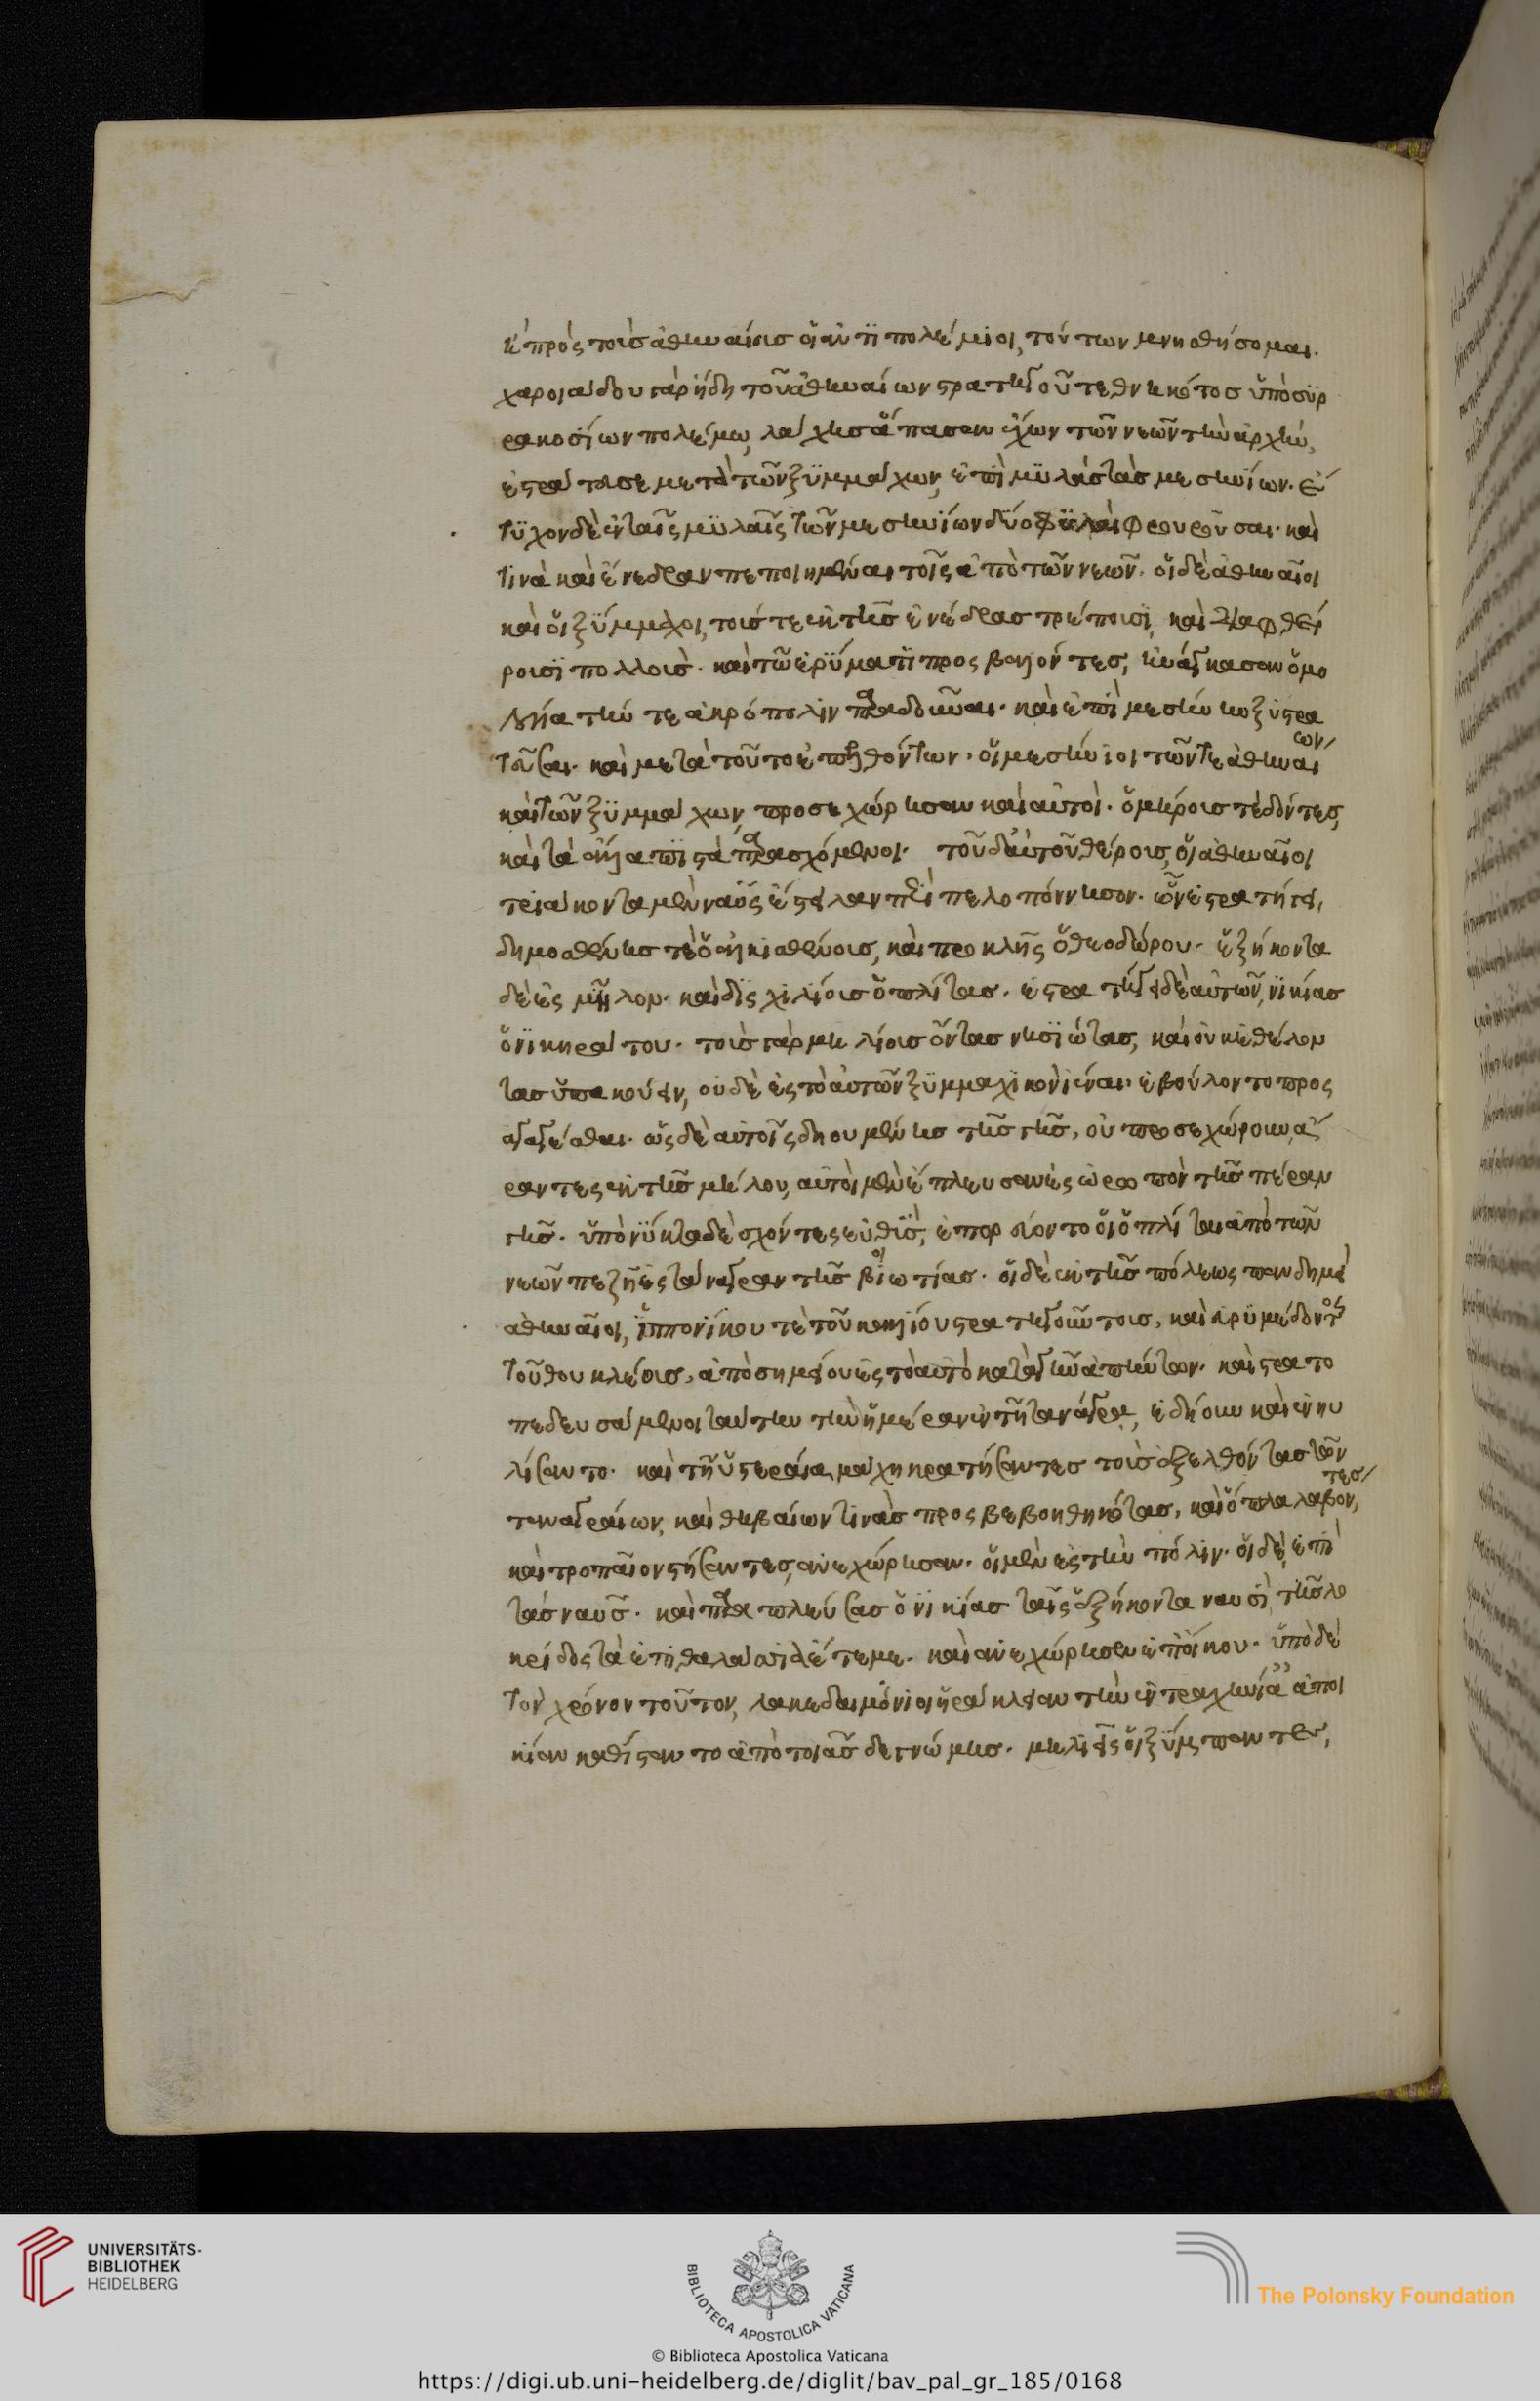 ἢ πρὸς τοὺς ἀθηναίους οἱ ἀντιπολέμιοι, τούτων μνησθήσομαι.
χαροιάδου γὰρ ἤδη τοῦ ἀθηναίων στρατηγοῦ τεθνηκότος ὑπὸ συρ
ρακοσίων πολέμω, λάχης ἅπασαν ἔχων τῶν νεῶν τὴν ἀρχὴν,
ἐστράτευσε μετὰ τῶν ξυμμάχων, ἐπὶ μυλὰς τὰς μεσηνίων. ἔ
τυχον δὲ ἐν ταῖς μυλαῖς τῶν μεσηνίων δύο φυλαὶ φρουροῦσαι. καί
τινα καὶ ἐνέδραν πεποιημέναι τοῖς ἀπὸ τῶν νεῶν. οἱ δὲ ἀθηναῖοι
καὶ οἱ ξύμμαχοι, τούς τε ἐκ τῆς ἐνέδρας τρέπουσι, καὶ διαφθεί
ρουσι πολλούς. καὶ τῶ ἐρύματι προσβαλόντες, ἠνάγκασαν ὁμο
λογία τήν τε ἀκρόπολιν παραδοῦναι. καὶ ἐπὶ μεσήνην ξυστρα
τεῦσαι. καὶ μετὰ τοῦτο ἐπελθόντων, οἱ μεσήνιοι τῶν τε ἀθηναίων
καὶ τῶν ξυμμάχων, προσεχώρησαν καὶ αὐτοί. ὁμήρους τε δόντες,
καὶ τὰ ἄλλα πιστὰ παρασχόμενοι. τοῦ δ' αὐτοῦ θέρους, οἱ ἀθηναῖοι
τριάκοντα μὲν ναῦς ἔστειλαν περὶ πελοπόννησον. ὧν ἐστρατήγει,
δημοσθένης τε ὁ ἀλκισθένους, καὶ προκλῆς ὁ θεοδώρου. ἑξήκοντα
δὲ ἐς μῆλον. καὶ δισχιλίους ὁπλίτας. ἐστρατήγει δὲ αὐτῶν, νικίας
ὁ νικηράτου. τοὺς γὰρ μηλίους ὄντας νησιώτας, καὶ οὐκ ἐθέλον
τας ὑπακούειν, οὐδὲ ἐς τὸ αὐτῶν ξυμμαχικὸν ἰέναι, ἐβούλοντο προς
αγαγέσθαι. ὡς δὲ αὐτοῖς δηουμένης τῆς γῆς, οὐ προσεχώρουν, ἄ
ραντες ἐκ τῆς μήλου, αὐτοὶ μὲν ἔπλευσαν ἐς ὠρωπὸν τῆς πέραν
γῆς. ὑπὸ νύκτα δὲ σχόντες εὐθὺς, ἐπορεύοντο οἱ ὁπλῖται ἀπὸ τῶν
νεῶν πεζῇ ἐς τάναγραν τῆς βοιωτίας. οἱ δὲ ἐκ τῆς πόλεως πανδημεὶ
ἀθηναῖοι, ἱππονίκου τε τοῦ καλλίου στρατηγοῦντος, καὶ εὐρυμέδοντος
τοῦ θουκλέους, ἀπὸ σημείου ἐς τὸ αὐτὸ κατὰ γῆν ἀπήντων. καὶ στρατο
πεδευσάμενοι ταύτην τὴν ἡμέραν ἐν τῆ τανάγρα, ἐδήουν καὶ ἐνηυ
λίσαντο. καὶ τῆ ὑστεραία μάχη κρατήσαντες τοὺς ἐξελθόντας τῶν
ταναγραίων, καὶ θηβαίων τινὰς προσβεβοηθηκότας, καὶ ὅπλα λαβόντες,
καὶ τροπαῖον στήσαντες, ἀνεχώρησαν. οἱ μὲν ἐς τὴν πόλιν. οἱ δὲ, ἐπὶ
τὰς ναῦς. καὶ παραπλεύσας ὁ νικίας ταῖς ἑξήκοντα ναυσὶ, τῆς λο
κρίδος τὰ ἐπιθαλάσσια ἔτεμε. καὶ ἀνεχώρησεν ἐπ' οἴκου. ὑπὸ δὲ
τὸν χρόνον τοῦτον, λακεδαιμόνιοι ἡράκλειαν τὴν ἐν τραχινία ἀποι
κίαν καθίσταντο ἀπὸ τοιᾶσδε γνώμης. μηλιεῖς οἱ ξύμπαντες,
UNIVERSITÄTS-
BIBLIOTHEK
HEIDELBERG
BIBLIOTECA APOSTOLICA VATICANA
The Polonsky Foundation
© Biblioteca Apostolica Vaticana
https://digi.ub.uni-heidelberg.de/diglit/bav_pal_gr_185/0168